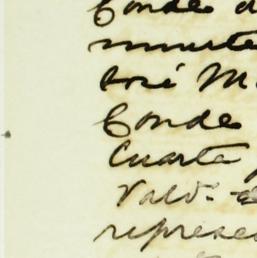 Conde d
muerte
José M.
Conde
Cuarta
Valv.
represe